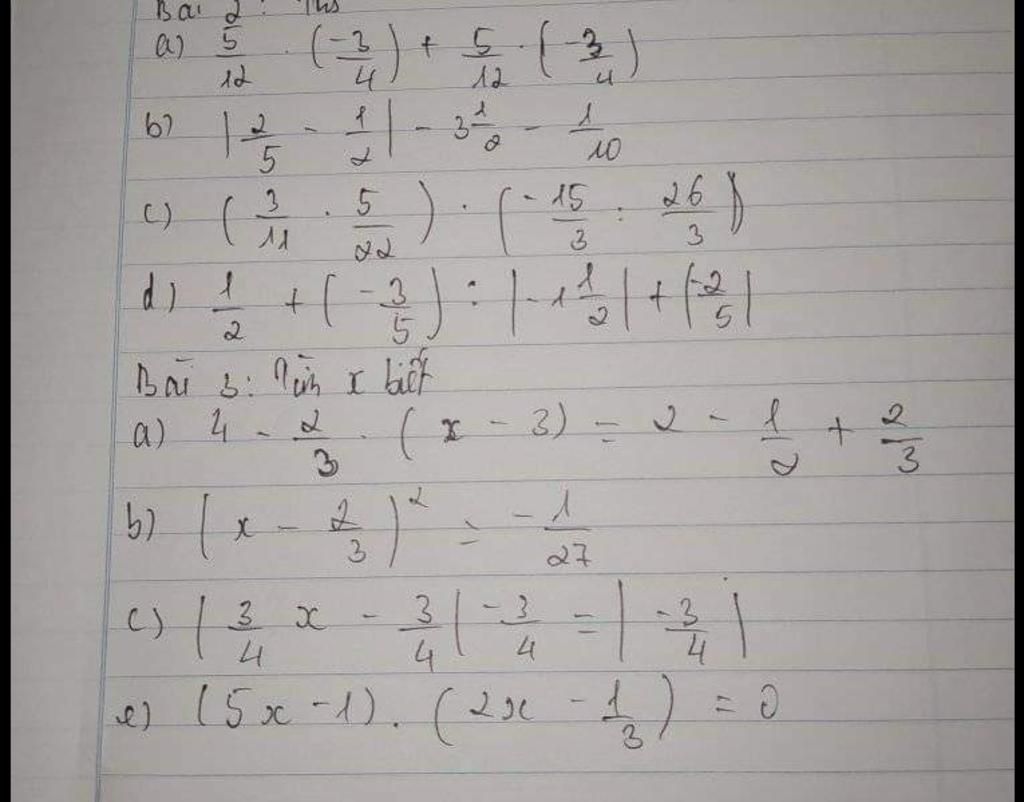 Bài 2:
a) 5/12 . (-3/4) + 5/12 . (-3/4)
b) |2/5 - 1/2| - 3 1/2 - 1/10
c) (3/11 . 5/22) . (-15/3 : 26/3)
d) 1/2 + (-3/5) : |-1 1/2| + |-2/5|
Bài 3: Tìm x biết
a) 4 - 2/3 . (x - 3) = 2 - 1/2 + 2/3
b) (x - 2/3)² = -1/27
c) |3/4 x - 3/4| - 3/4 = |-3/4|
e) (5x - 1) . (2x - 1/3) = 0